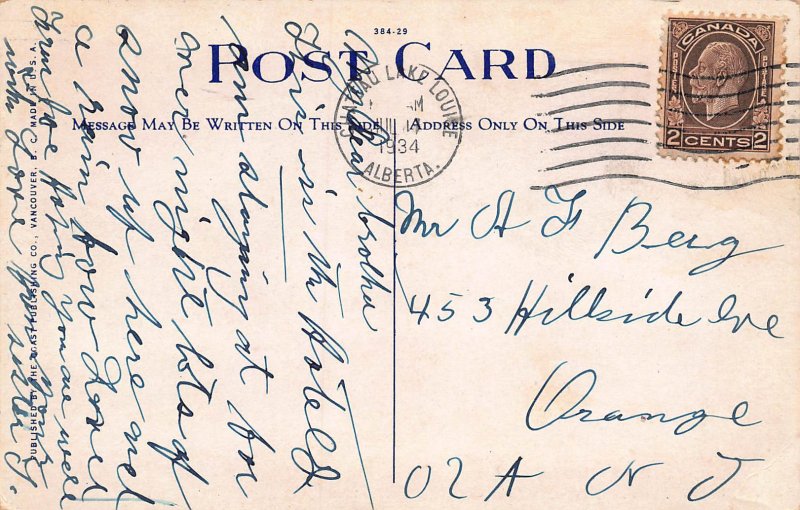 384-29
POST CARD
MESSAGE MAY BE WRITTEN ON THIS SIDE
ADDRESS ONLY ON THIS SIDE
CHATEAU LAKE LOUISE
AM
JUL 14
1934
ALBERTA.
CANADA
2 CENTS 2
Mr A F Berg
453 Hillside Ave
Orange
USA N J
dear brother
This is the Hotel I
am staying at for
one night lots of
snow up here and
a Rain
you are well
with Love from your
sister J.
PUBLISHED BY THE COAST PUBLISHING CO., VANCOUVER, B. C. MADE IN U. S. A.